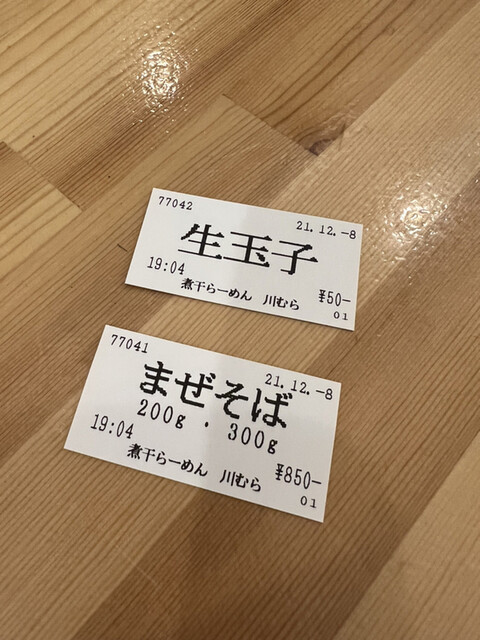 77042
21.12.-8
生玉子
19:04
¥50-
煮干らーめん 川むら
01
77041
21.12.-8
まぜそば
200g . 300g
19:04
¥850-
煮干らーめん 川むら
01